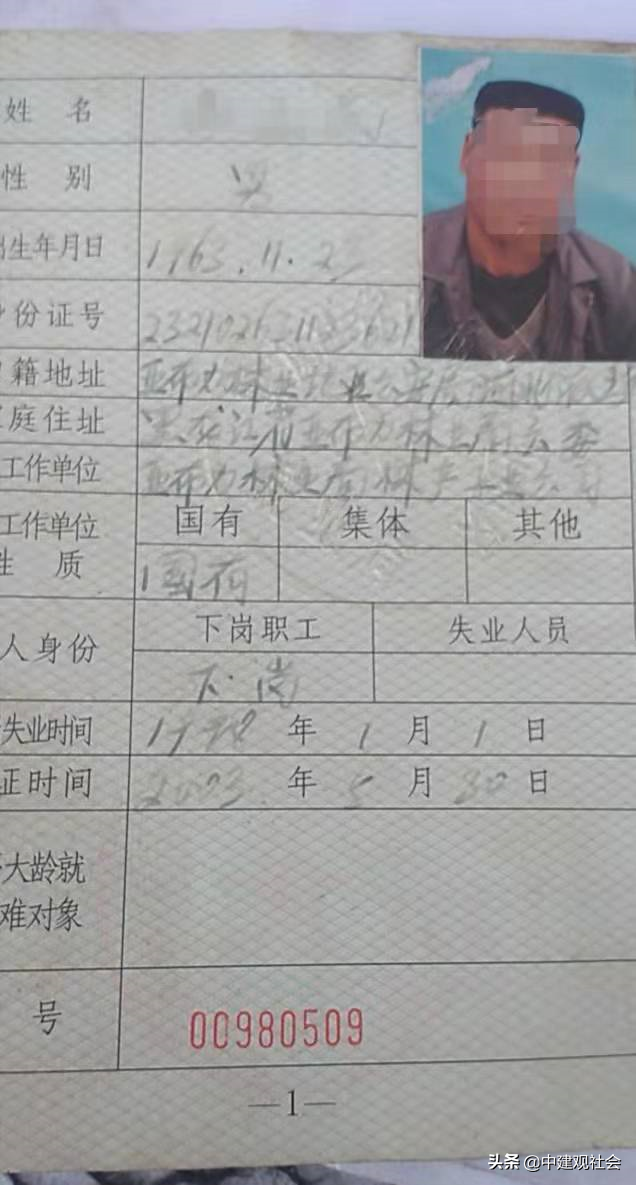 姓 名
性 别
出生年月日 1963.11.23
份证号
籍地址 亚布力林业
庭住址 黑龙江省亚布力林业局六委
工作单位 亚布力林业局林产工业公司
工作单位 国有 集体 其他
性 质 国有
人身份 下岗职工 失业人员
下岗
失业时间 1998年1月1日
证时间 2003年5月30日
大龄就
难对象
号 00980509
—1—
头条 @中建观社会